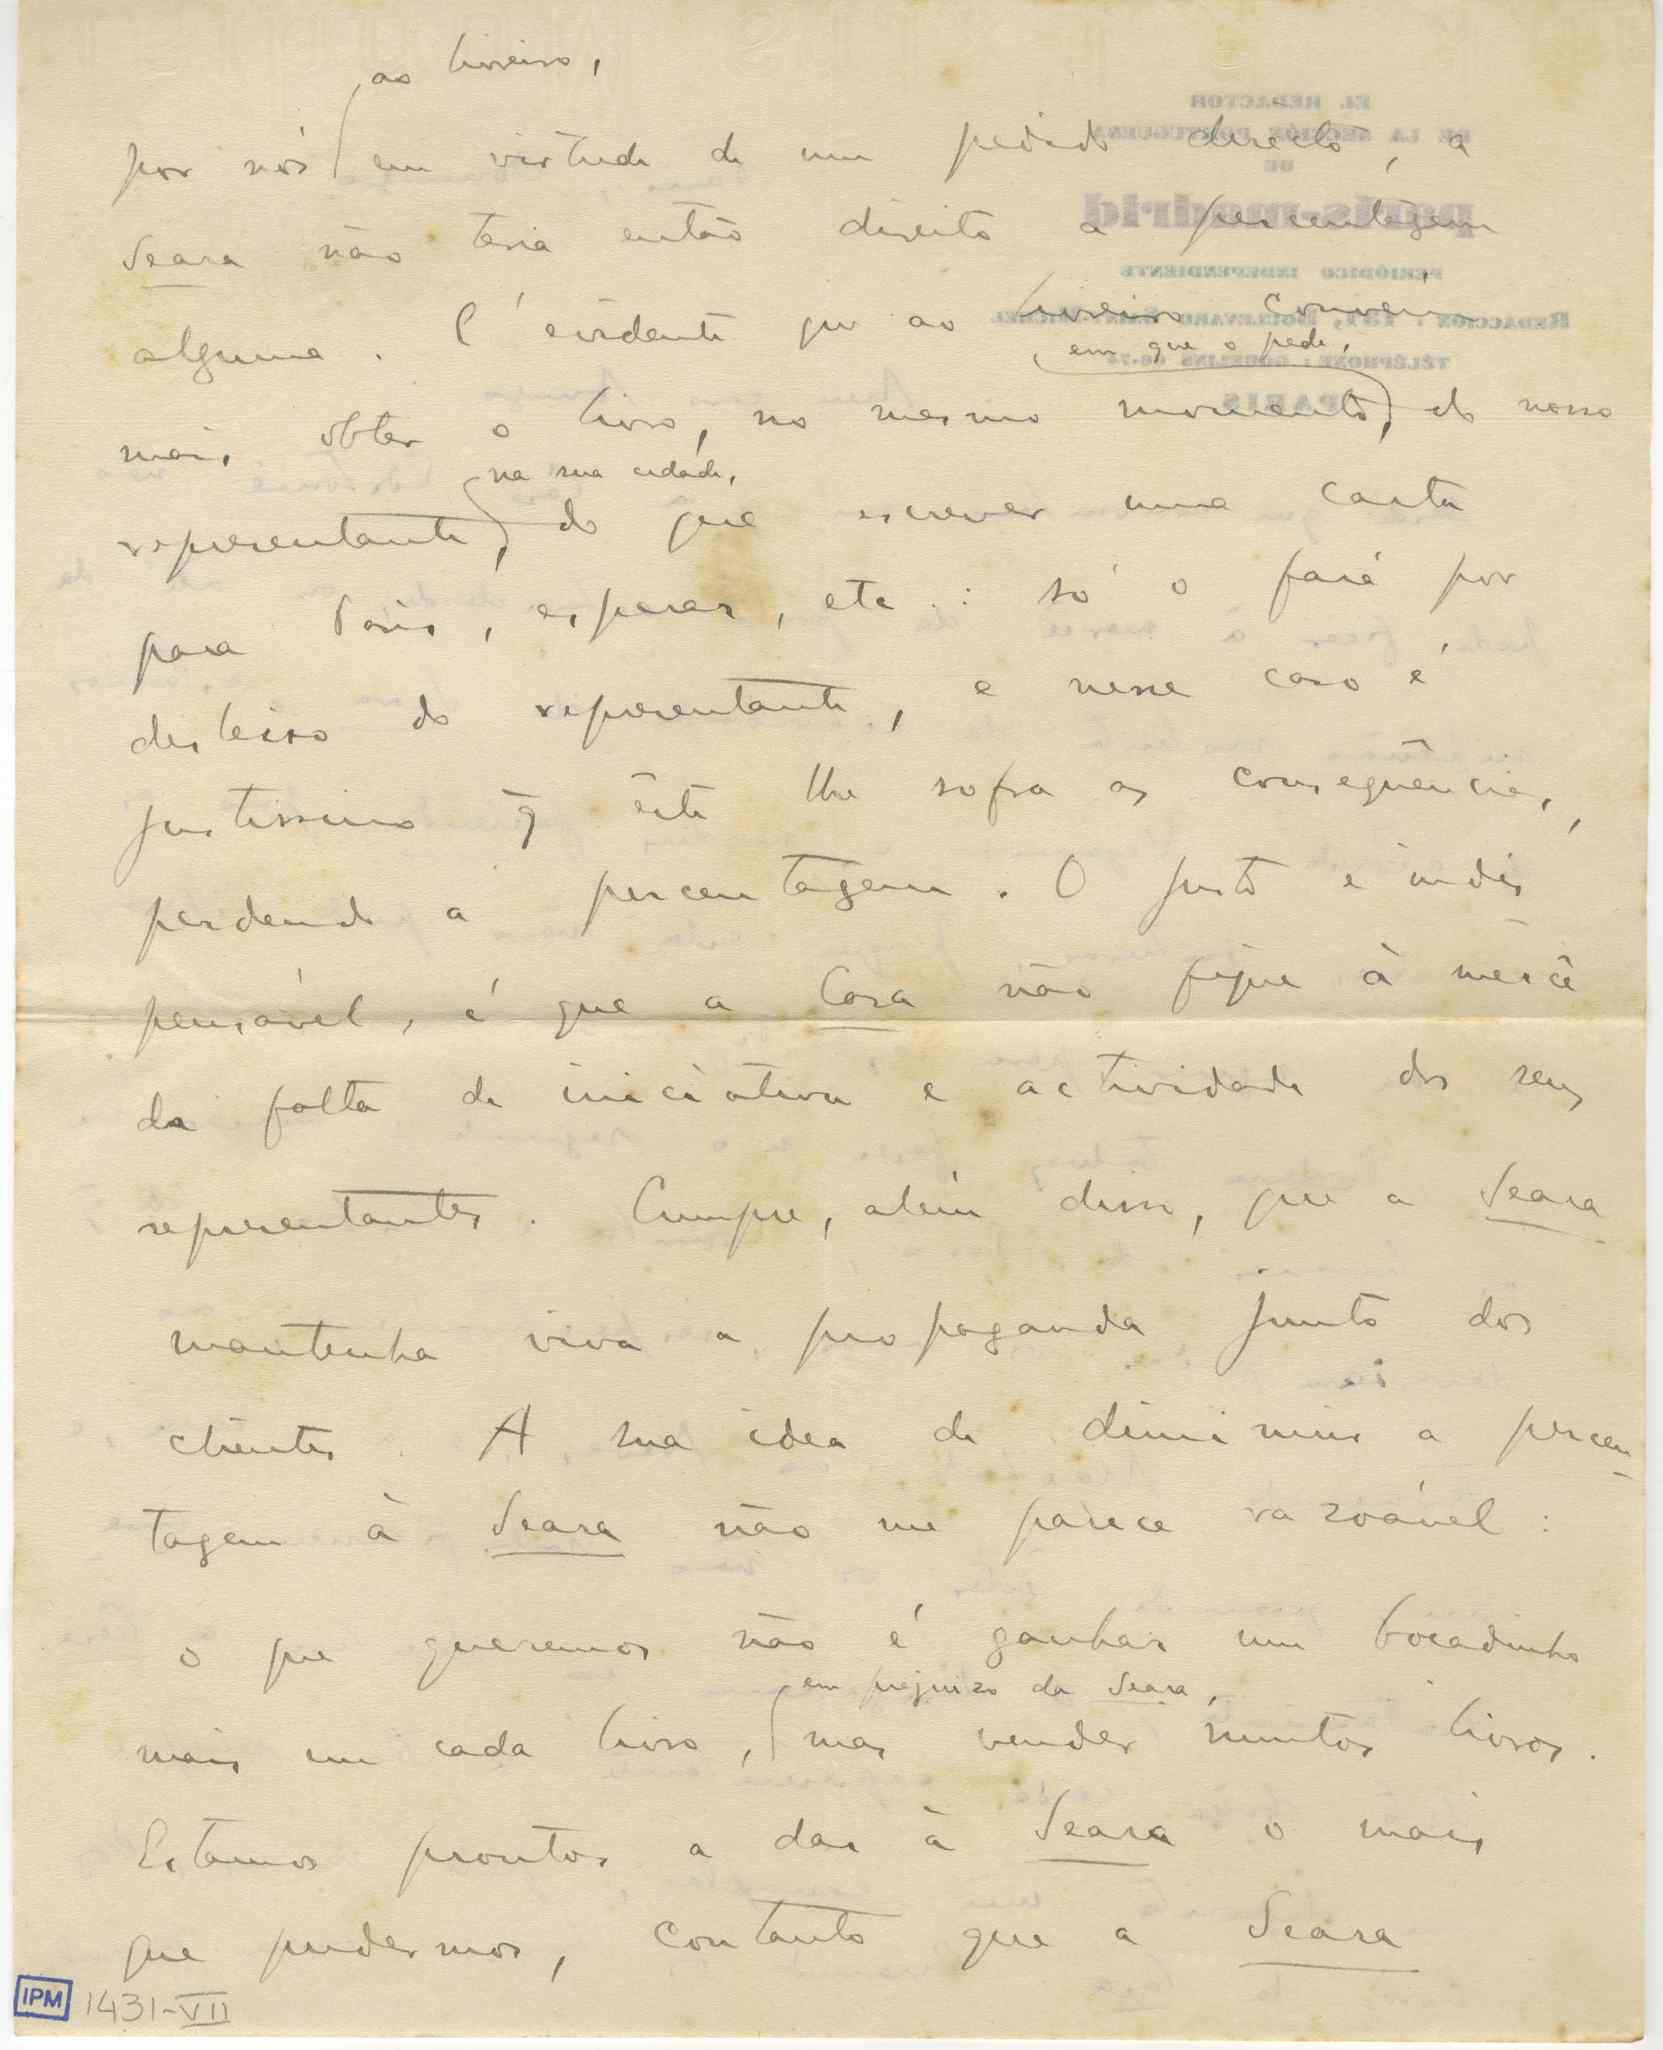 ao livreiro,
por nós em virtude de um pedido directo, a
Seara não teria então direito a percentagem
alguma. É evidente que ao livreiro convém
em que o pede,
mais obter o livro, no mesmo momento, do nosso
na sua cidade,
representante, do que escrever uma carta
para Paris, esperar, etc.: só o fará por
desleixo do representante, e nesse caso é
justíssimo q̃ êste lhe sofra as conseqüências,
perdendo a percentagem. O justo e indis
pensável, é que a Casa não fique à mercê
da falta de iniciativa e actividade dos seus
representantes. Cumpre, além disso, que a Seara
mantenha viva a propaganda junto dos
clientes. A sua idea de diminuir a percen-
tagem à Seara não me parece razoável:
o que queremos não é ganhar um bocadinho
em prejuizo da Seara,
mais em cada livro, mas vender muitos livros.
Estamos prontos a dar à Seara o mais
que pudermos, contanto que a Seara
IPM 1431-VII
EL REDACTOR
DE LA SECCIÓN PORTUGUESA
DE
paris-madrid
PERIÓDICO INDEPENDIENTE
REDACCIÓN : 151, BOULEVARD SAINT-MICHEL
TÉLÉPHONE : GOBELINS
PARIS